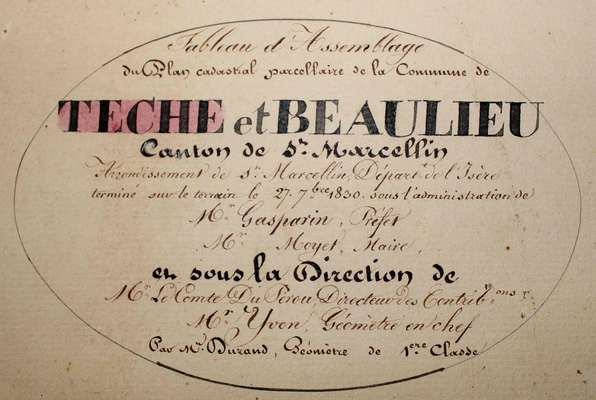 Tableau d'Assemblage
du Plan cadastral parcellaire de la Commune de
TECHE et BEAULIEU
Canton de St. Marcellin
Arrondissement de St. Marcellin, Départt. de l'Isère
terminé sur le terrain le 27. 7bre 1830. sous l'administration de
Mr. Gasparin, Préfet
Mr. Moyet, Maire,
et sous la Direction de
Mr. Le Comte Du Pérou, Directeur des Contribons
Mr. Yvon, Géomètre en chef
Par Mr. Durand, Géomètre de 1ere Classe